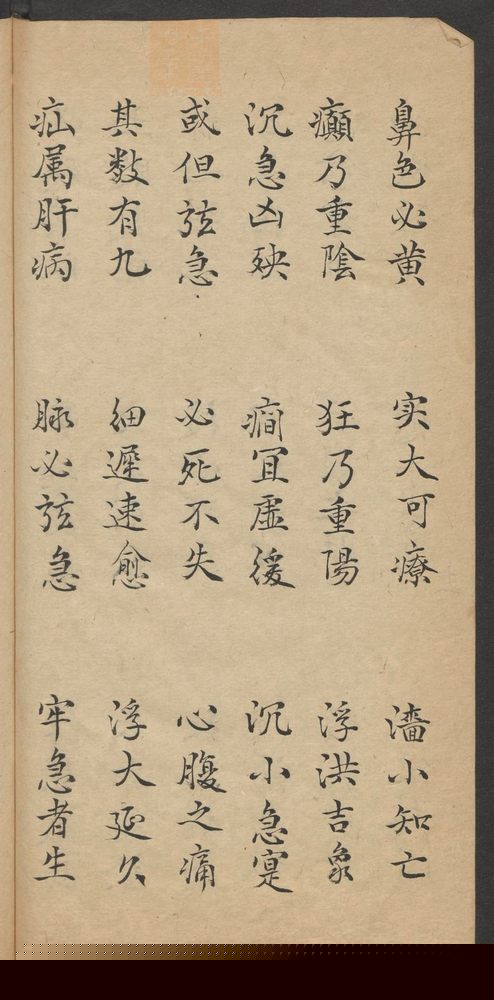 鼻色必黄 实大可療 濇小知亡
癲乃重陰 狂乃重陽 浮洪吉象
沉急凶殃 癎宜虚緩 沉小急寔
或但弦急 必死不失 心腹之痛
其数有九 细遲速愈 浮大延久
疝属肝病 脉必弦急 牢急者生